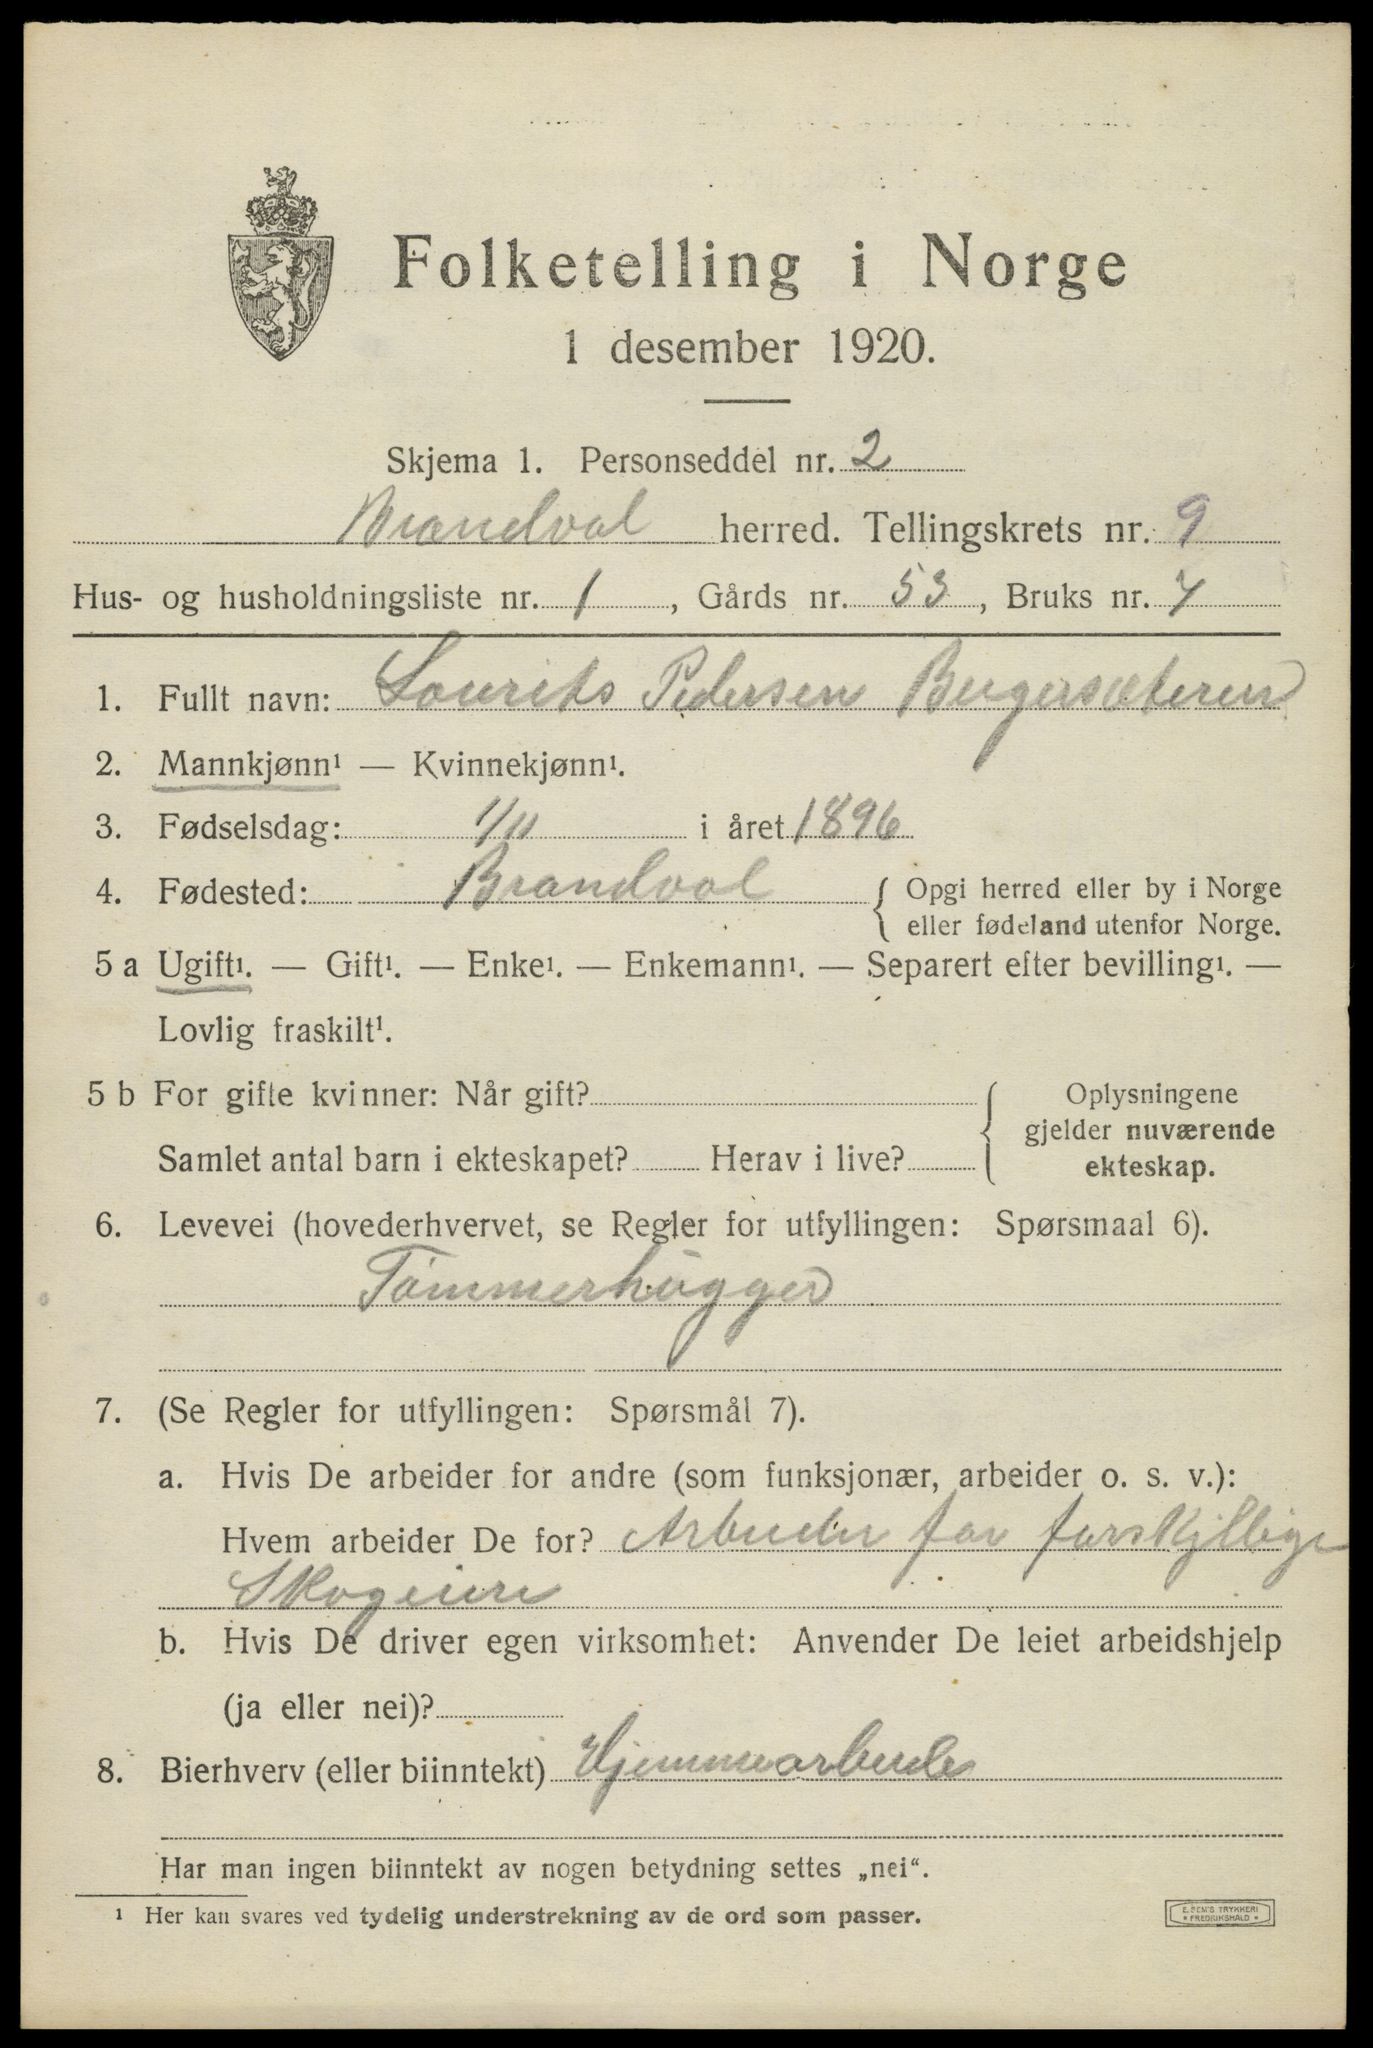 Folketelling i Norge
1 desember 1920.
Skjema 1. Personseddel nr. 2
Brandval herred. Tellingskrets nr. 9
Hus- og husholdningsliste nr. 1, Gårds nr. 53, Bruks nr. 7
1. Fullt navn: Lourits Pedersen Bergersæteren
2. Mannkjønn¹ — Kvinnekjønn¹.
3. Fødselsdag: 1/11 i året 1896
4. Fødested: Brandval { Opgi herred eller by i Norge
eller fødeland utenfor Norge.
5 a Ugift¹. — Gift¹. — Enke¹. — Enkemann¹. — Separert efter bevilling¹. —
Lovlig fraskilt¹.
5 b For gifte kvinner: Når gift? { Oplysningene
gjelder nuværende
Samlet antal barn i ekteskapet? Herav i live? ekteskap.
6. Levevei (hovederhvervet, se Regler for utfyllingen: Spørsmaal 6).
Tømmerhugger
7. (Se Regler for utfyllingen: Spørsmål 7).
a. Hvis De arbeider for andre (som funksjonær, arbeider o. s. v.):
Hvem arbeider De for? Arbeider for forskjllige
Skogeiere
b. Hvis De driver egen virksomhet: Anvender De leiet arbeidshjelp
(ja eller nei)?
8. Bierhverv (eller biinntekt) Hjemmearbeide
Har man ingen biinntekt av nogen betydning settes „nei“.
¹ Her kan svares ved tydelig understrekning av de ord som passer.
E. SEM'S TRYKKERI
* FREDRIKSHALD *